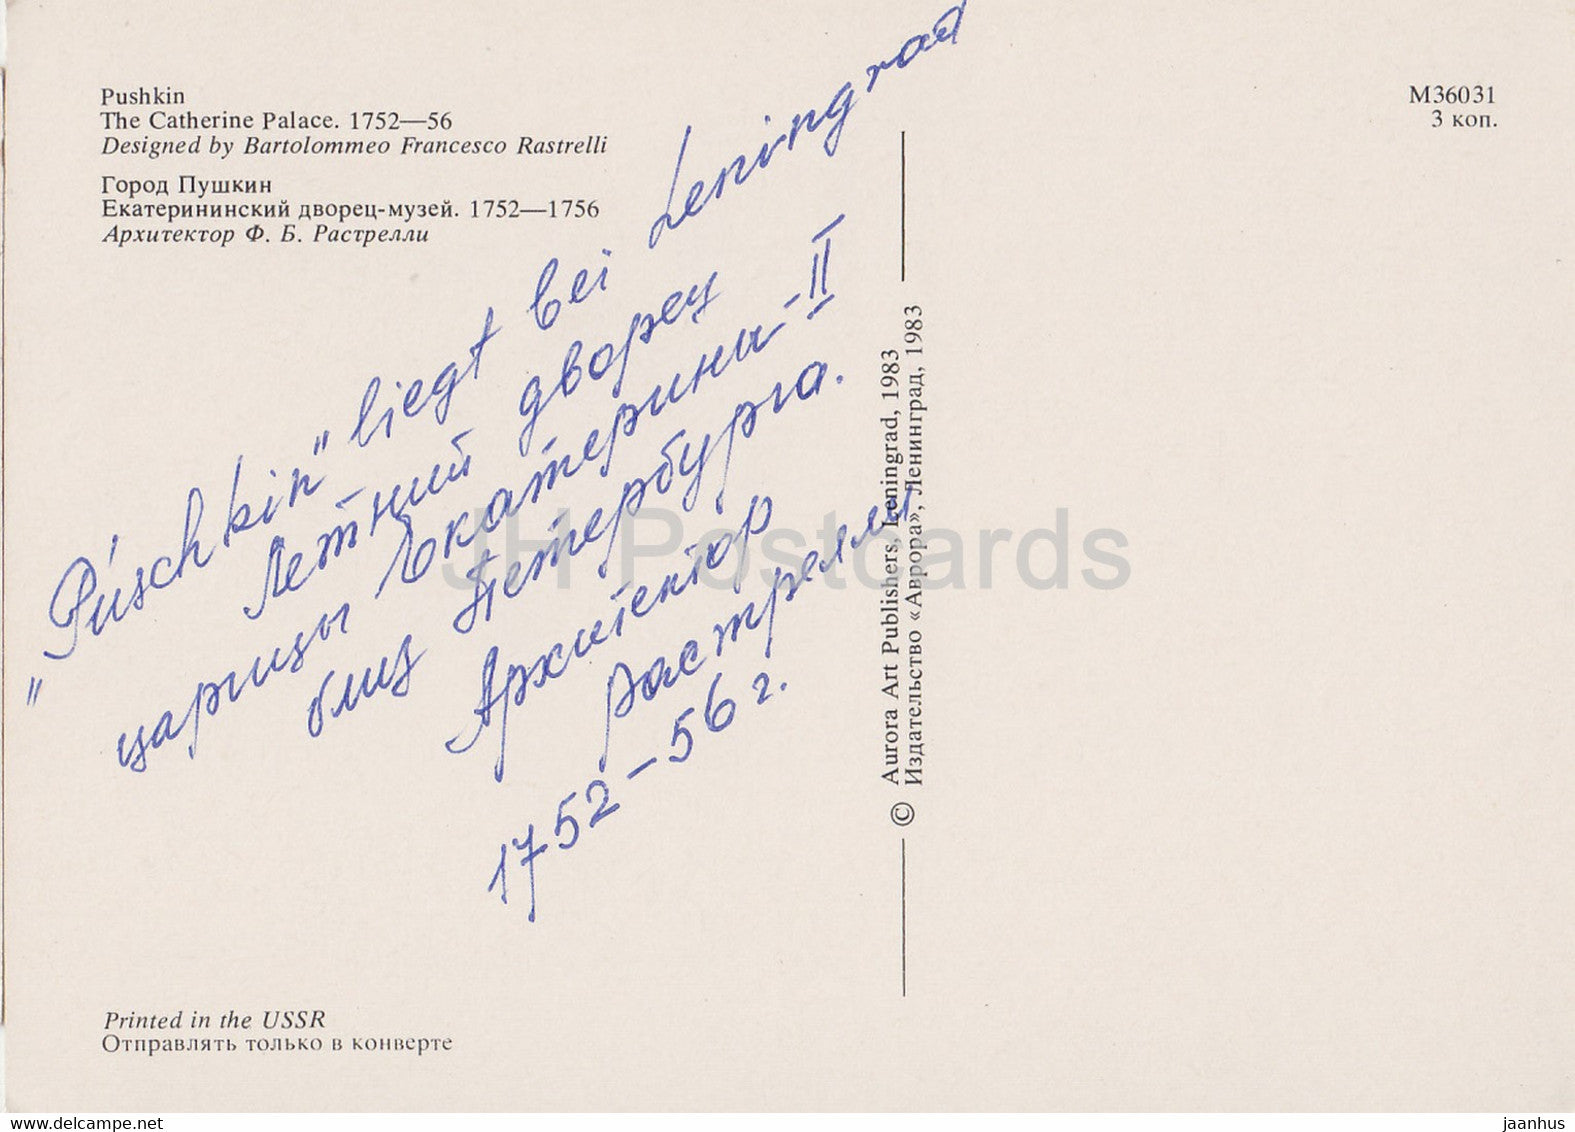 Pushkin
The Catherine Palace. 1752—56
Designed by Bartolommeo Francesco Rastrelli
Город Пушкин
Екатерининский дворец-музей. 1752—1756
Архитектор Ф. Б. Растрелли
М36031
3 коп.
"Púschkin" liegt bei Leningrad
Летний дворец
царицы Екатерины-II
близ Петербурга.
Архитектор
Растрелли
1752-56 г.
© Aurora Art Publishers, Leningrad, 1983
Издательство «Аврора», Ленинград, 1983
JH Postcards
Printed in the USSR
Отправлять только в конверте
www.delcampe.net
jaanhus